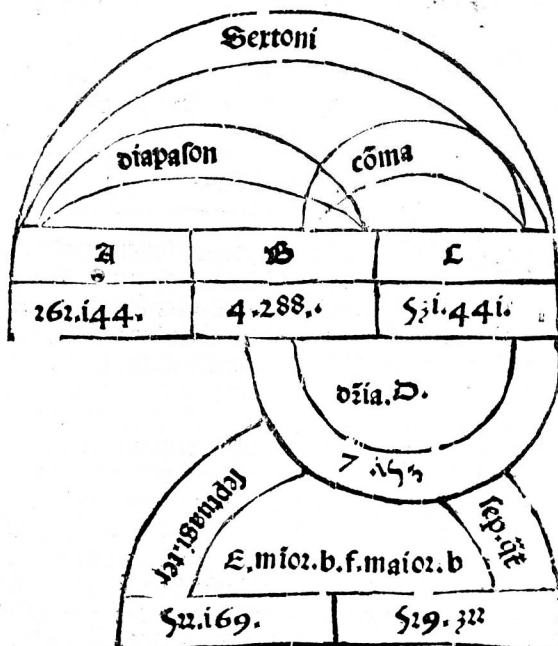 Sextoni
diapason cōma
A B C
262.144. 4.288.. 531.441.
dr̄ia.D.
7.153
septuagi.ter sep.q̄t
E.mior.b.f.maior.b
522.169. 529.322